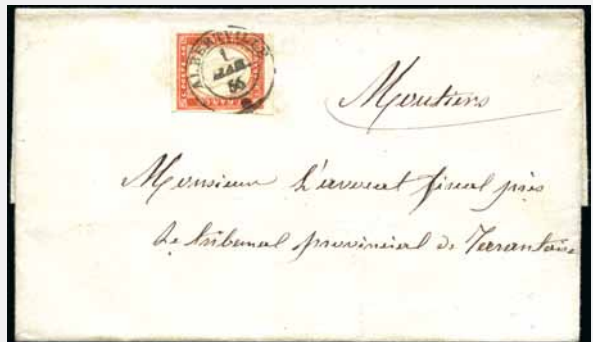 ALBERTVILLE
1
MAR
56
Moutiers
Monsieur L'avocat fiscal près
Le tribunal provincial de Tarantaise